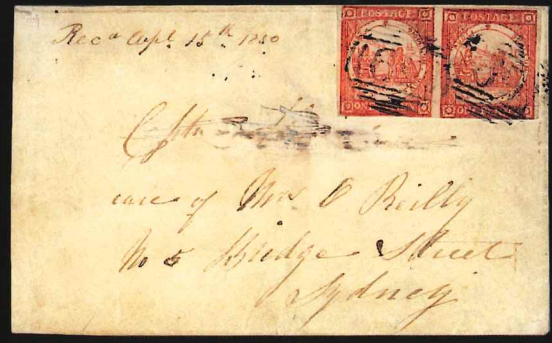 Recd Apl 15th 1850
POSTAGE POSTAGE
ONE
Captn
care of Mrs O Reilly
No 5 Bridge Street
Sydney